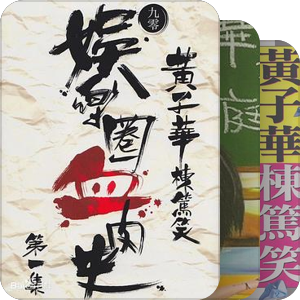 九零
娛樂圈血肉史
第一集
黃子華棟篤笑
華
庭
黃子華
棟篤笑